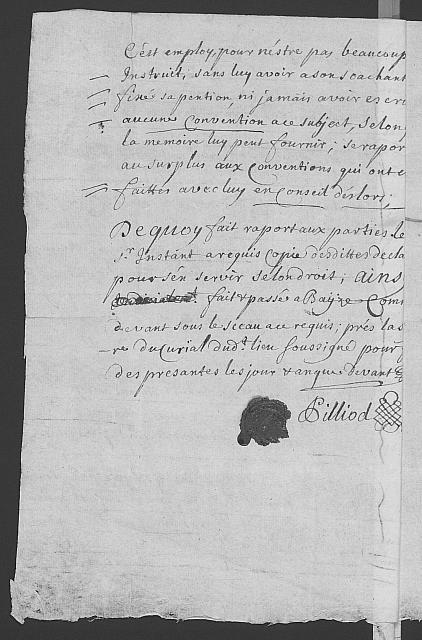 C'est employ, pour n'éstre pas beaucoup
Instruit, sans luy avoir a son scachant
fixé sa pention, ni jamais avoir es cri
aucune Convention a ce subject, selon
la memoire luy peut fournir; se rapor
au surplus aux Conventions qui ont e
faittes avec luy en Conseil déslors;
De quoy fait raport aux parties le
Sr. Instant a requis Copie desdittes decla
pour s'en servir selon droit; ains
fait & passé a Bayze Com
devant sous le sceau ace requis; prés la s
re du Curial dudt. lieu soussigné pour
des presantes les jour & an que devant
Pilliod